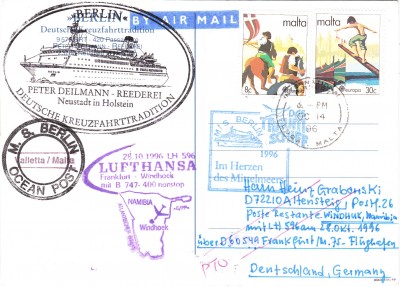 BERLIN
BY AIR MAIL
Deutsche Kreuzfahrttradition
PETER DEILMANN - REEDEREI
Neustadt in Holstein
DEUTSCHE KREUZFAHRTTRADITION
malta
8c
europa
malta
30c
6 PM
OC 14
96
MALTA
M. S. BERLIN
Valletta / Malta
OCEAN POST
28.10.1996 LH 596
LUFTHANSA
Frankfurt - Windhoek
mit B 747-400 nonstop
NAMIBIA
Windhoek
BERLIN
1996
Im Herzen
des Mittelmeers
Herrn Heinz Grabowski
D72210 Altensteig, Postf. 26
Poste Restante WINDHUK, Namibia
mit LH 596 am 28. Okt. 1996
über D60549 Frankfurt/M. 75. Flughafen
PTO:
Deutschland, Germany